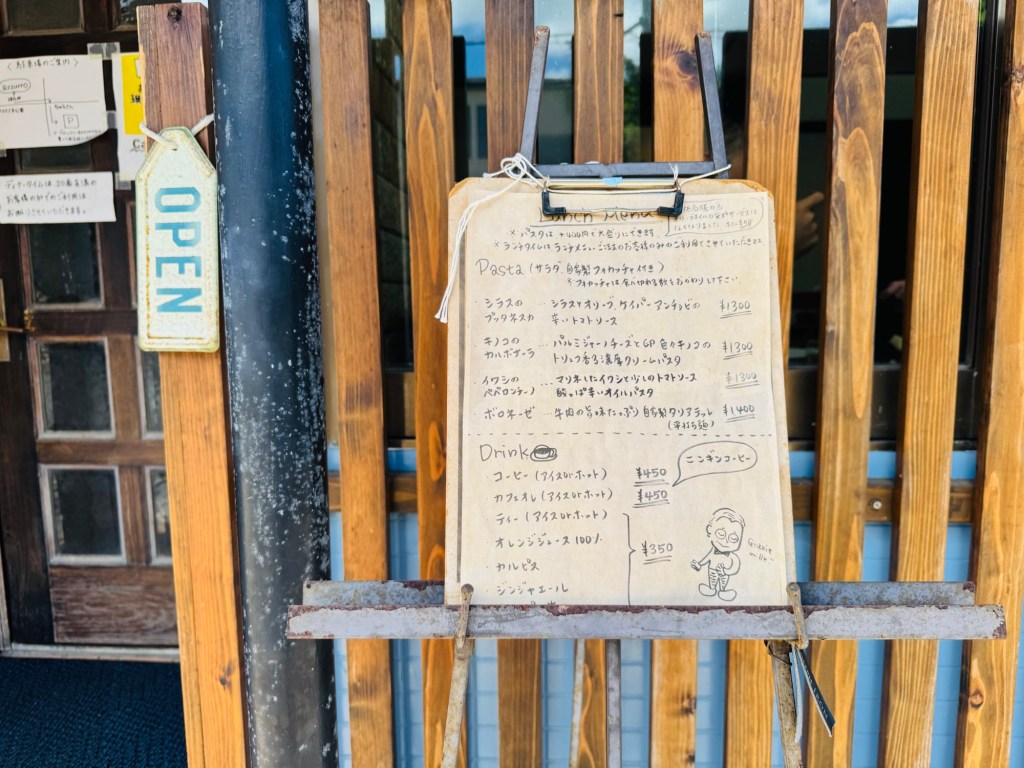 〈駐車場のご案内〉
P
ディナータイムは、20歳以上の
お客様のみでのご利用は
お断りさせていただきます。
OPEN
Lunch Menu
※ パスタは +¥100円で大盛りにできます
※ ランチタイムは ランチメニューご注文のお客様のみのご利用とさせていただきます
Pasta (サラダ、自家製フォカッチャ付き)
・シラスの プッタネスカ
... シラスとオリーブ、ケイパー、アンチョビの
辛いトマトソース
¥1300
・キノコの カルボナーラ
... パルミジャーノチーズとGP 色々キノコの
トリュフ香る濃厚クリームパスタ
¥1300
・イワシの ペペロンチーノ
... マリネしたイワシと少しのトマトソース
酸っぱ辛いオイルパスタ
¥1300
・ボロネーゼ
... 牛肉の旨味たっぷり 自家製タリアテッレ
(平打ち麺)
¥1400
Drink
・コーヒー (アイスorホット) ¥450
・カフェオレ (アイスorホット) ¥450
・ティー (アイスorホット)
・オレンジジュース 100%
・カルピス
・ジンジャエール
¥350
ニンギンコーヒー